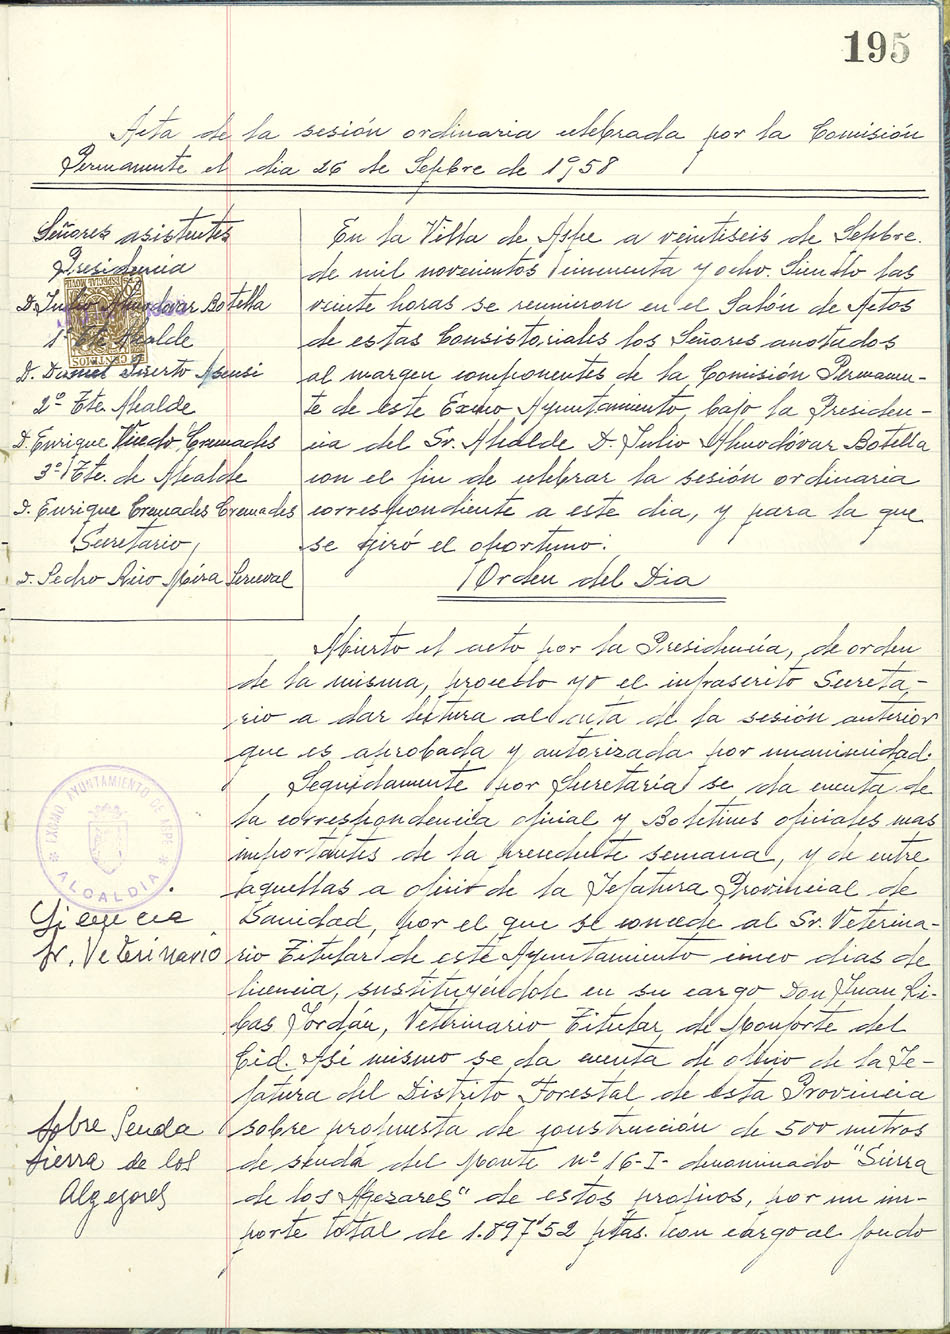 195
Acta de la sesión ordinaria celebrada por la Comisión
Permanente el dia 26 de Sepbre de 1958
Señores asistentes
Presidencia
D. Julio Almodóvar Botella
1º Tte Alcalde
D. Daniel Puerto Asensi
2º Tte. Alcalde
D. Enrique Cremades
3º Tte. de Alcalde
D. Enrique Cremades Cremades
Secretario,
D. Pedro Rico Mira
En la Villa de Aspe a veintiseis de Sepbre.
de mil novecientos cincuenta y ocho. Siendo las
veinte horas se reunieron en el Salón de Actos
de estas Consistoriales los Señores anotados
al margen componentes de la Comisión Permanen-
te de este Excmo Ayuntamiento, bajo la Presiden-
cia del Sr. Alcalde D. Julio Almodóvar Botella
con el fin de celebrar la sesión ordinaria
correspondiente a este dia, y para la que
se giró el oportuno:
Orden del Dia
Abierto el acto por la Presidencia, de orden
de la misma, procedo yo el infrascrito Secreta-
rio a dar lectura al acta de la sesión anterior
que es aprobada y autorizada por unanimidad.
Seguidamente por Secretaría se da cuenta de
la correspondencia oficial y Boletines oficiales mas
importantes de la precedente semana, y de entre
aquellas a oficio de la Jefatura Provincial de
Sanidad, por el que se concede al Sr. Veterina-
rio Titular de este Ayuntamiento cinco dias de
licencia, sustituyéndole en su cargo Don Juan Ri-
bas Jordán, Veterinario Titular de Monforte del
Cid. Asi mismo se da cuenta de oficio de la Je-
fatura del Distrito Forestal de esta Provincia
sobre propuesta de construcción de 500 metros
de senda del Monte nº 16-I- denominado "Sierra
de los Algezares" de estos propios, por un im-
porte total de 1.897'52 ptas. con cargo al fondo
EXCMO AYUNTAMIENTO DE ASPE
* ALCALDIA *
Licencia
Sr. Veterinario
Sobre Senda
Sierra de los
Algezares
ESPECIAL MOVIL
CENTIMOS